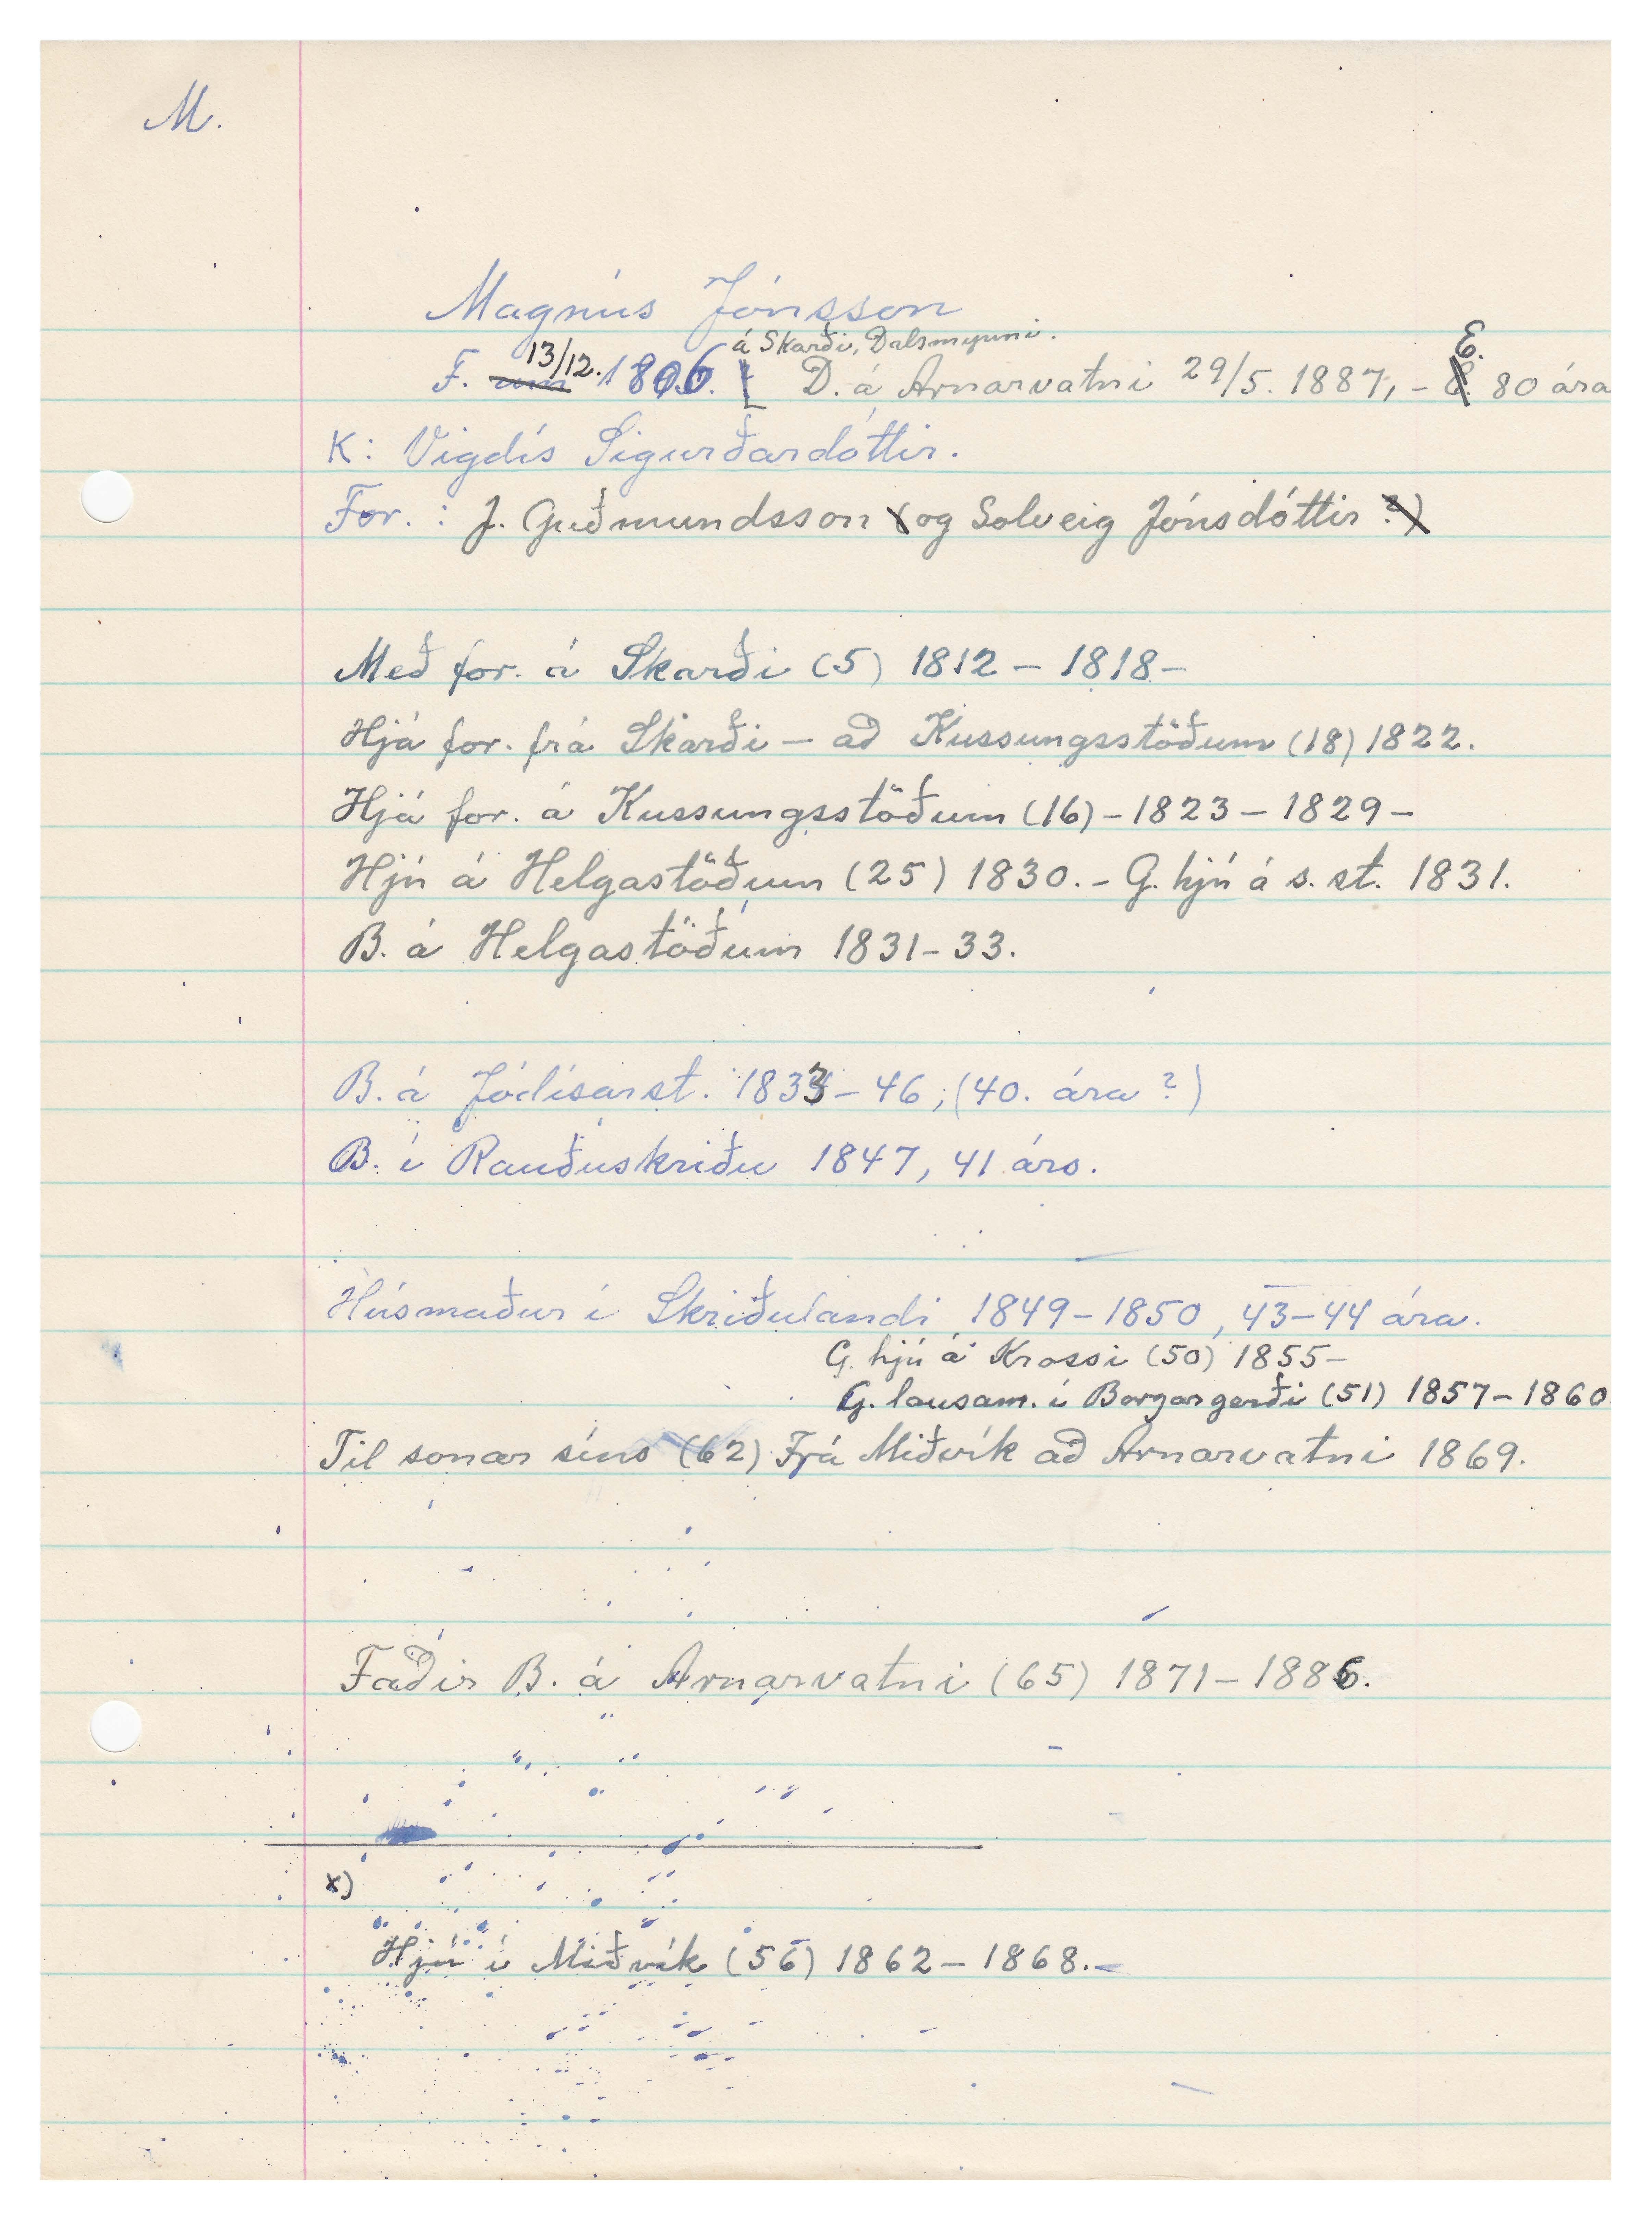 M.
Magnús Jónsson
á Skarði, Dalsmynni.
F. um 13/12. 1806. D. á Arnarvatni 29/5. 1887, - E. 80 ára
K: Vigdís Sigurðardóttir.
For.: J. Guðmundsson (og Solveig Jónsdóttir ?)
Með for. á Skarði (5) 1812 - 1818 -
Hjá for. frá Skarði - að Kussungsstöðum (18) 1822.
Hjá for. á Kussungsstöðum (16) - 1823 - 1829 -
Hjú á Helgastöðum (25) 1830. - G. hjú á s. st. 1831.
B. á Helgastöðum 1831 - 33.
B. á Jódísarst. 1833 - 46; (40. ára ?)
B. í Rauðuskriðu 1847, 41 árs.
Húsmaður í Skriðulandi 1849 - 1850, 43 - 44 ára.
G. hjú á Krossi (50) 1855 -
G. lausam. í Borgargerði (51) 1857 - 1860
Til sonar síns (62) Frá Miðvík að Arnarvatni 1869.
Faðir B. á Arnarvatni (65) 1871 - 1886.
x)
Hjú í Miðvík (56) 1862 - 1868. -